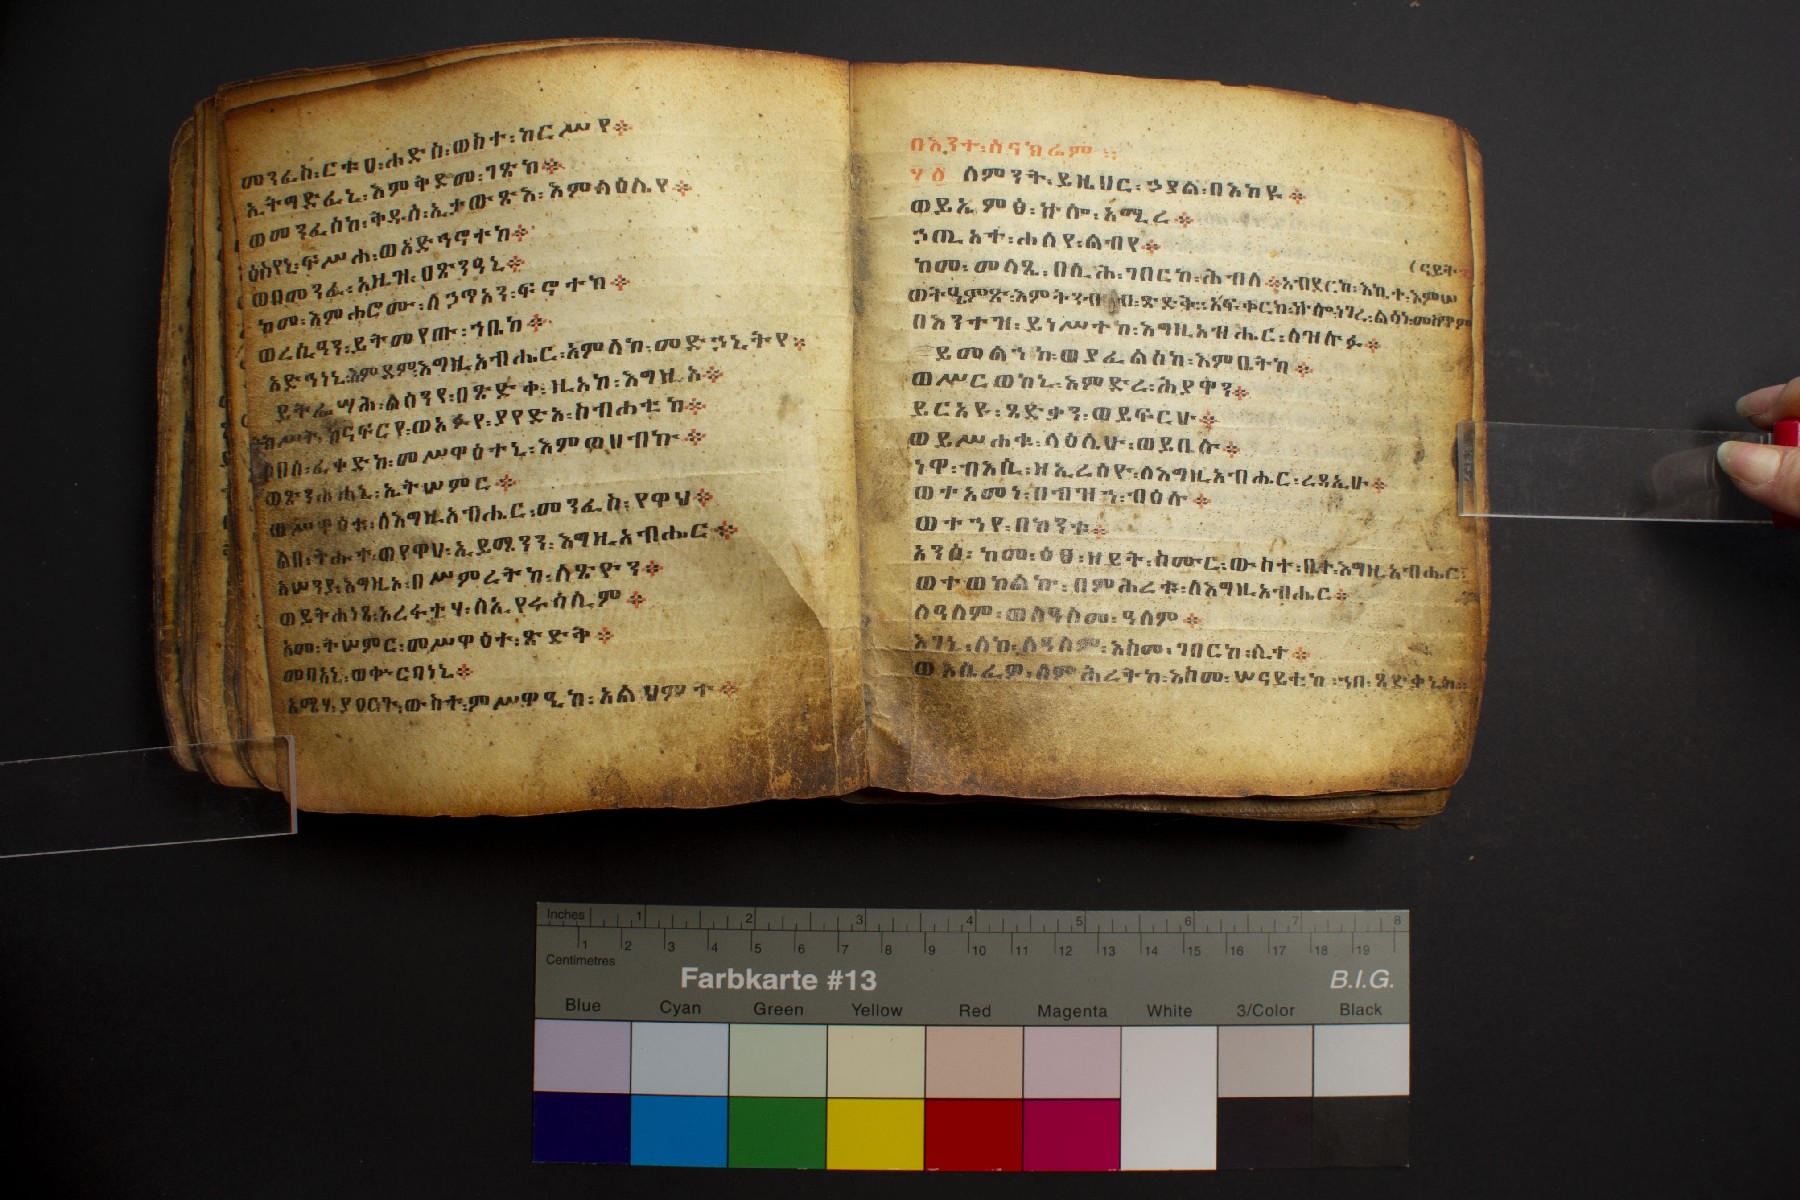 መንፈሰ፡ርቱዐ፡ሐድስ፡ወስተ፡ከርሥየ፨
ኢትግድፈኒ፡እምቅድመ፡ገጽከ፨
ወመንፈሰከ፡ቅዱሰ፡ኢታውጽእ፡እምላዕሌየ፨
ዕስየኒ፡ፍሥሐ፡ወአድኅኖተከ፨
ወበመንፈ፡አዚዝ፡ዐጽንዓኒ፨
ከመ፡እምሐሮሙ፡ለኃጥአን፡ፍኖተከ፨
ወረሲዓን፡ይትመየጡ፡ኀቤከ፨
አድኅነኒ፡እምደም፡እግዚአብሔር፡አምላከ፡መድኃኒትየ፨
ይትፌሣሕ፡ልሳንየ፡በጽድቀ፡ዚአከ፡እግዚአ፨
ክሥት፡ከናፍርየ፡ወአፉየ፡ያየድአ፡ስብሐቲከ፨
ሶበሰ፡ፈቀድከ፡መሥዋዕተኒ፡እምወሀብኩ፨
ወጽንሐሐኒ፡ኢትሠምር፨
መሥዋዕቱ፡ለእግዚአብሔር፡መንፈስ፡የዋህ፨
ልበ፡ትሑተ፡ወየዋሀ፡ኢይሜንን፡እግዚአብሔር፨
አሠንያ፡እግዚኦ፡በሥምረትከ፡ለጽዮን፨
ወይትሐነጻ፡አረፋቲሃ፡ለኢየሩሳሌም፨
አሙ፡ትሠምር፡መሥዋዕተ፡ጽድቅ፨
መባአኒ፡ወቍርባነኒ፨
አሜሃ፡ያዐርጉ፡ውስተ፡ምሥዋዒከ፡አልህምተ፨
በእንተ፡ሰናክሬም፨
፶፩ ለምንት፡ይዚህር፡ኃያል፡በእከዩ፨
ወይኤምፅ፡ኵሎ፡አሚረ፨
ኃጢአተ፡ሐለየ፡ልብየ፨
(ናይት
ከመ፡መላጺ፡በሊሕ፡ገበርከ፡ሕብለ፨አብደርከ፡እኪተ፡እምሠ
ወትዔምጽ፡እምትንብብ፡ጽድቅ፨አፍቀርከ፡ኵሎ፡ነገረ፡ልሳነ፡መስጥም
በእንተዝ፡ይነሥተከ፡እግዚአብሔር፡ለዝሉፉ፨
ይመልኀከ፡ወያፈልስከ፡እምቤትከ፨
ወሥርወከኒ፡እምድረ፡ሕያዋን፨
ይርአዩ፡ጻድቃን፡ወይፍርሁ፨
ወይሥሐቁ፡ላዕሌሁ፡ወይቤሉ፨
ነዋ፡ብእሲ፡ዘኢረሰዮ፡ለእግዚአብሔር፡ረዳኢሁ፨
ወተአመነ፡በብዝኀ፡ብዕሉ፨
ወተኀየ፡በከንቱ፨
አንሰ፡ከመ፡ዕፀ፡ዘይት፡ስሙር፡ውስተ፡ቤተ፡እግዚአብሔር፨
ወተወከልኩ፡በምሕረቱ፡ለእግዚአብሔር፨
ለዓለም፡ወለዓለመ፡ዓለም፨
እገኒ፡ለከ፡ለዓለም፡እስመ፡ገበርከ፡ሊተ፨
ወእሴፈዎ፡ለምሕረትከ፡እስመ፡ሠናይቲከ፡ኀበ፡ጻድቃኒከ፨
Inches 1 2 3 4 5 6 7 8
1 2 3 4 5 6 7 8 9 10 11 12 13 14 15 16 17 18 19
Centimetres
Farbkarte #13 B.I.G.
Blue Cyan Green Yellow Red Magenta White 3/Color Black